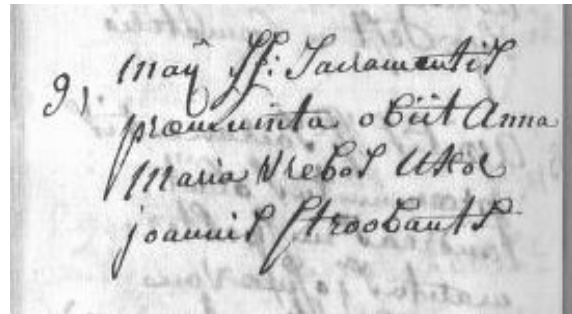 9) maÿ SS: Sacramentis
præmunita obiit Anna
Maria Vrebos Uxor
joannis Stroobants